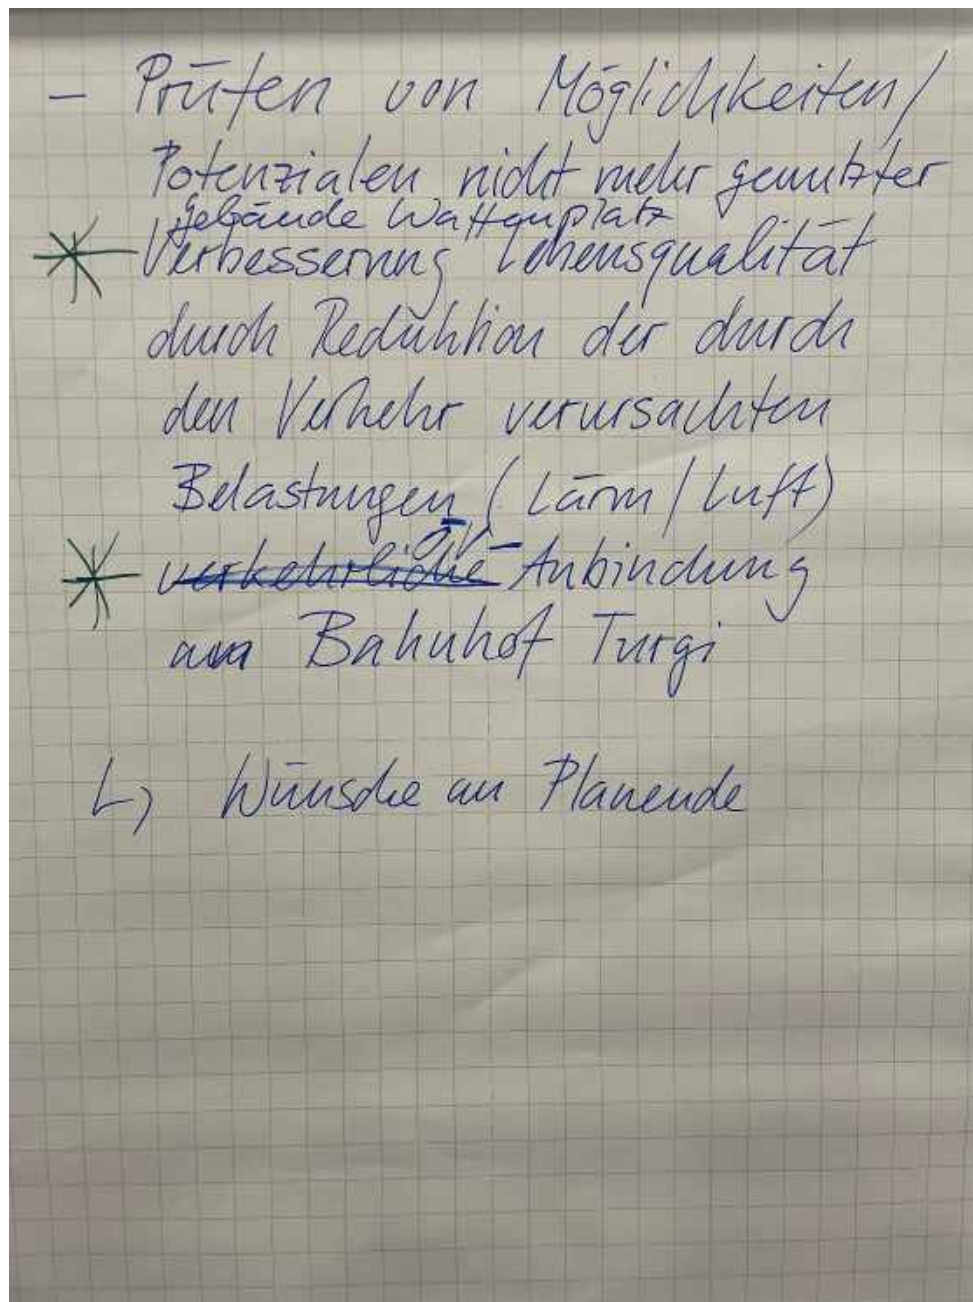 - Prüfen von Möglichkeiten/
Potenzialen nicht mehr genutzter
Gebäude Waffenplatz
Verbesserung Lebensqualität
durch Reduktion der durch
den Verkehr verursachten
Belastungen (Lärm/Luft)
verkehrliche ÖV- Anbindung
am Bahnhof Turgi
L> Wünsche an Planende